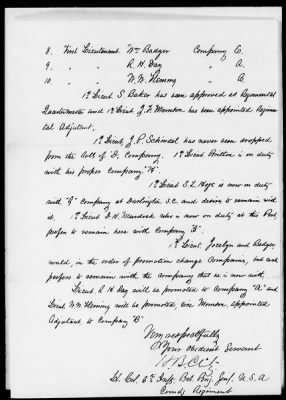 8. First Lieutenant Wm Badger Company E.
9. " " R. H. Day " A.
10. " " W. W. Fleming " B.
1st Lieut. S. Baker has been approved at Regimental
Quartermaster and 1st Lieut. J. F. Munson has been appointed Regimen-
tal Adjutant.
1st Lieut. J. P. Schindel has never been dropped
from the Roll of "D" Company. 1st Lieut. Britton is on duty
with his proper Company "H".
1st Lieut. S. L. Hays is now on duty
with "G" Company at Darlington S.C. and desires to remain with
it. 1st Lieut. D. H. Murdock who is now on duty at this Post,
prefers to remain here with Company "F".
1st Lieut. Jocelyn and Badger,
would, in the order of promotion change Companies, but each
prefers to remain with the company that he is now with.
Lieut. R. H. Day will be promoted to Company "A" and
Lieut. W. W. Fleming will be promoted, vice Munson, appointed
Adjutant, to Company "B"
Very respectfully
Your obedient Servant
Lt. Col. 6th Inft. Bvt. Brig. Genl. U.S.A
Comdg Regiment